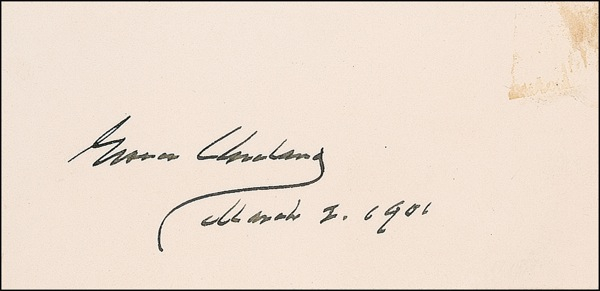 Grover Cleveland
March 2. 1901